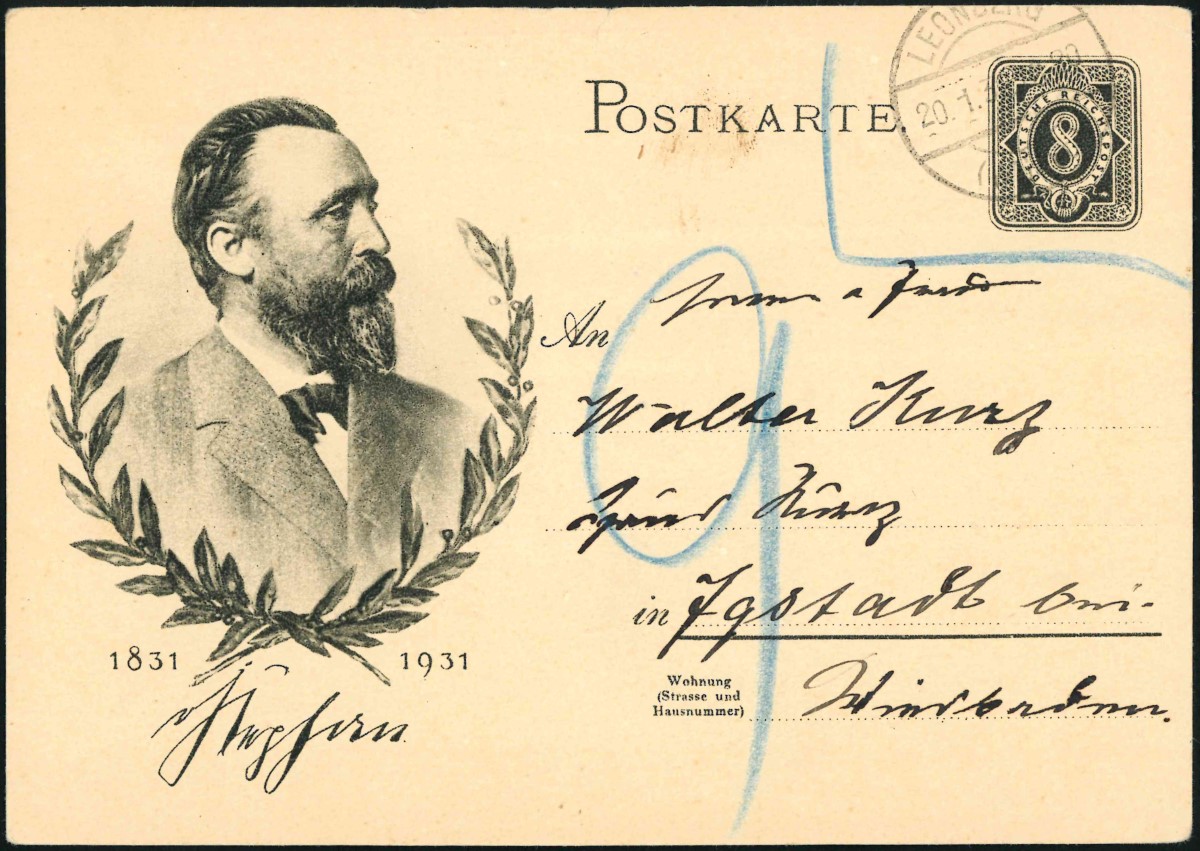 LEONBERG
20.1.3
20
POSTKARTE.
DEUTSCHE REICHSPOST
8
An
Walter Kurz
Kurz
in Igstadt bei
Wohnung
(Strasse und
Hausnummer)
Wiesbaden.
1831 1931
Stephan
9